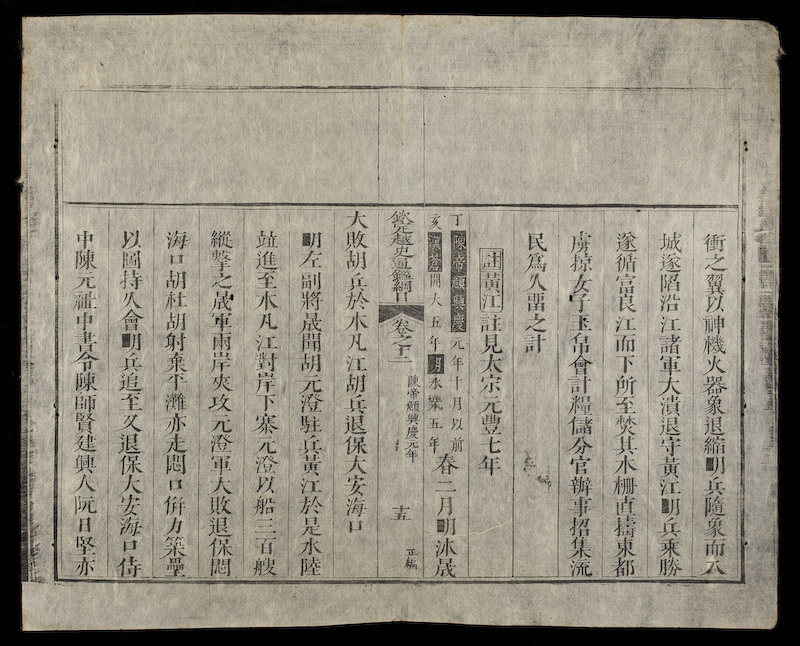 衝之翼以神機火器象退縮明兵隨象而入
城遂陷沿江諸軍大潰退守黃江明兵乘勝
遂循富良江而下所至焚其木柵直擣東都
虜掠女子玉帛會計糧儲分官辦事招集流
民爲久畱之計
註黃江註見太宗元豐七年
丁亥陳帝頠興慶元年十月以前漢蒼開大五年明永樂五年春二月明沐晟
欽定越史通鑑綱目 卷之十二 陳帝頠興慶元年 十五 正編
大敗胡兵於木凡江胡兵退保大安海口
明左副將晟聞胡元澄駐兵黃江於是水陸
竝進至木凡江對岸下寨元澄以船三百艘
縱擊之晟軍兩岸夾攻元澄軍大敗退保悶
海口胡杜胡射棄平灘亦走悶口倂力築壘
以圖持久會明兵追至又退保大安海口侍
中陳元祉中書令陳師賢建興人阮日堅亦